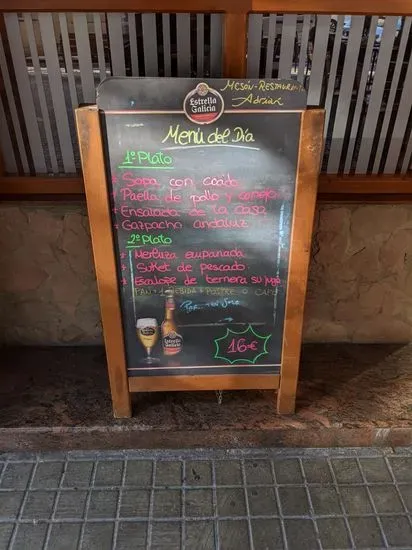 Mesón-Restaurante
Adrián
Estrella
Galicia
Menú del Día
1º Plato
+ Sopa con caldo
+ Paella de pollo y conejo
+ Ensalada de la casa
+ Gazpacho andaluz
2º Plato
+ Merluza empanada
+ Suket de pescado
+ Escalope de ternera su jugo
PAN + 1 BEBIDA + POSTRE O CAFÉ
Estrella
Galicia
16€